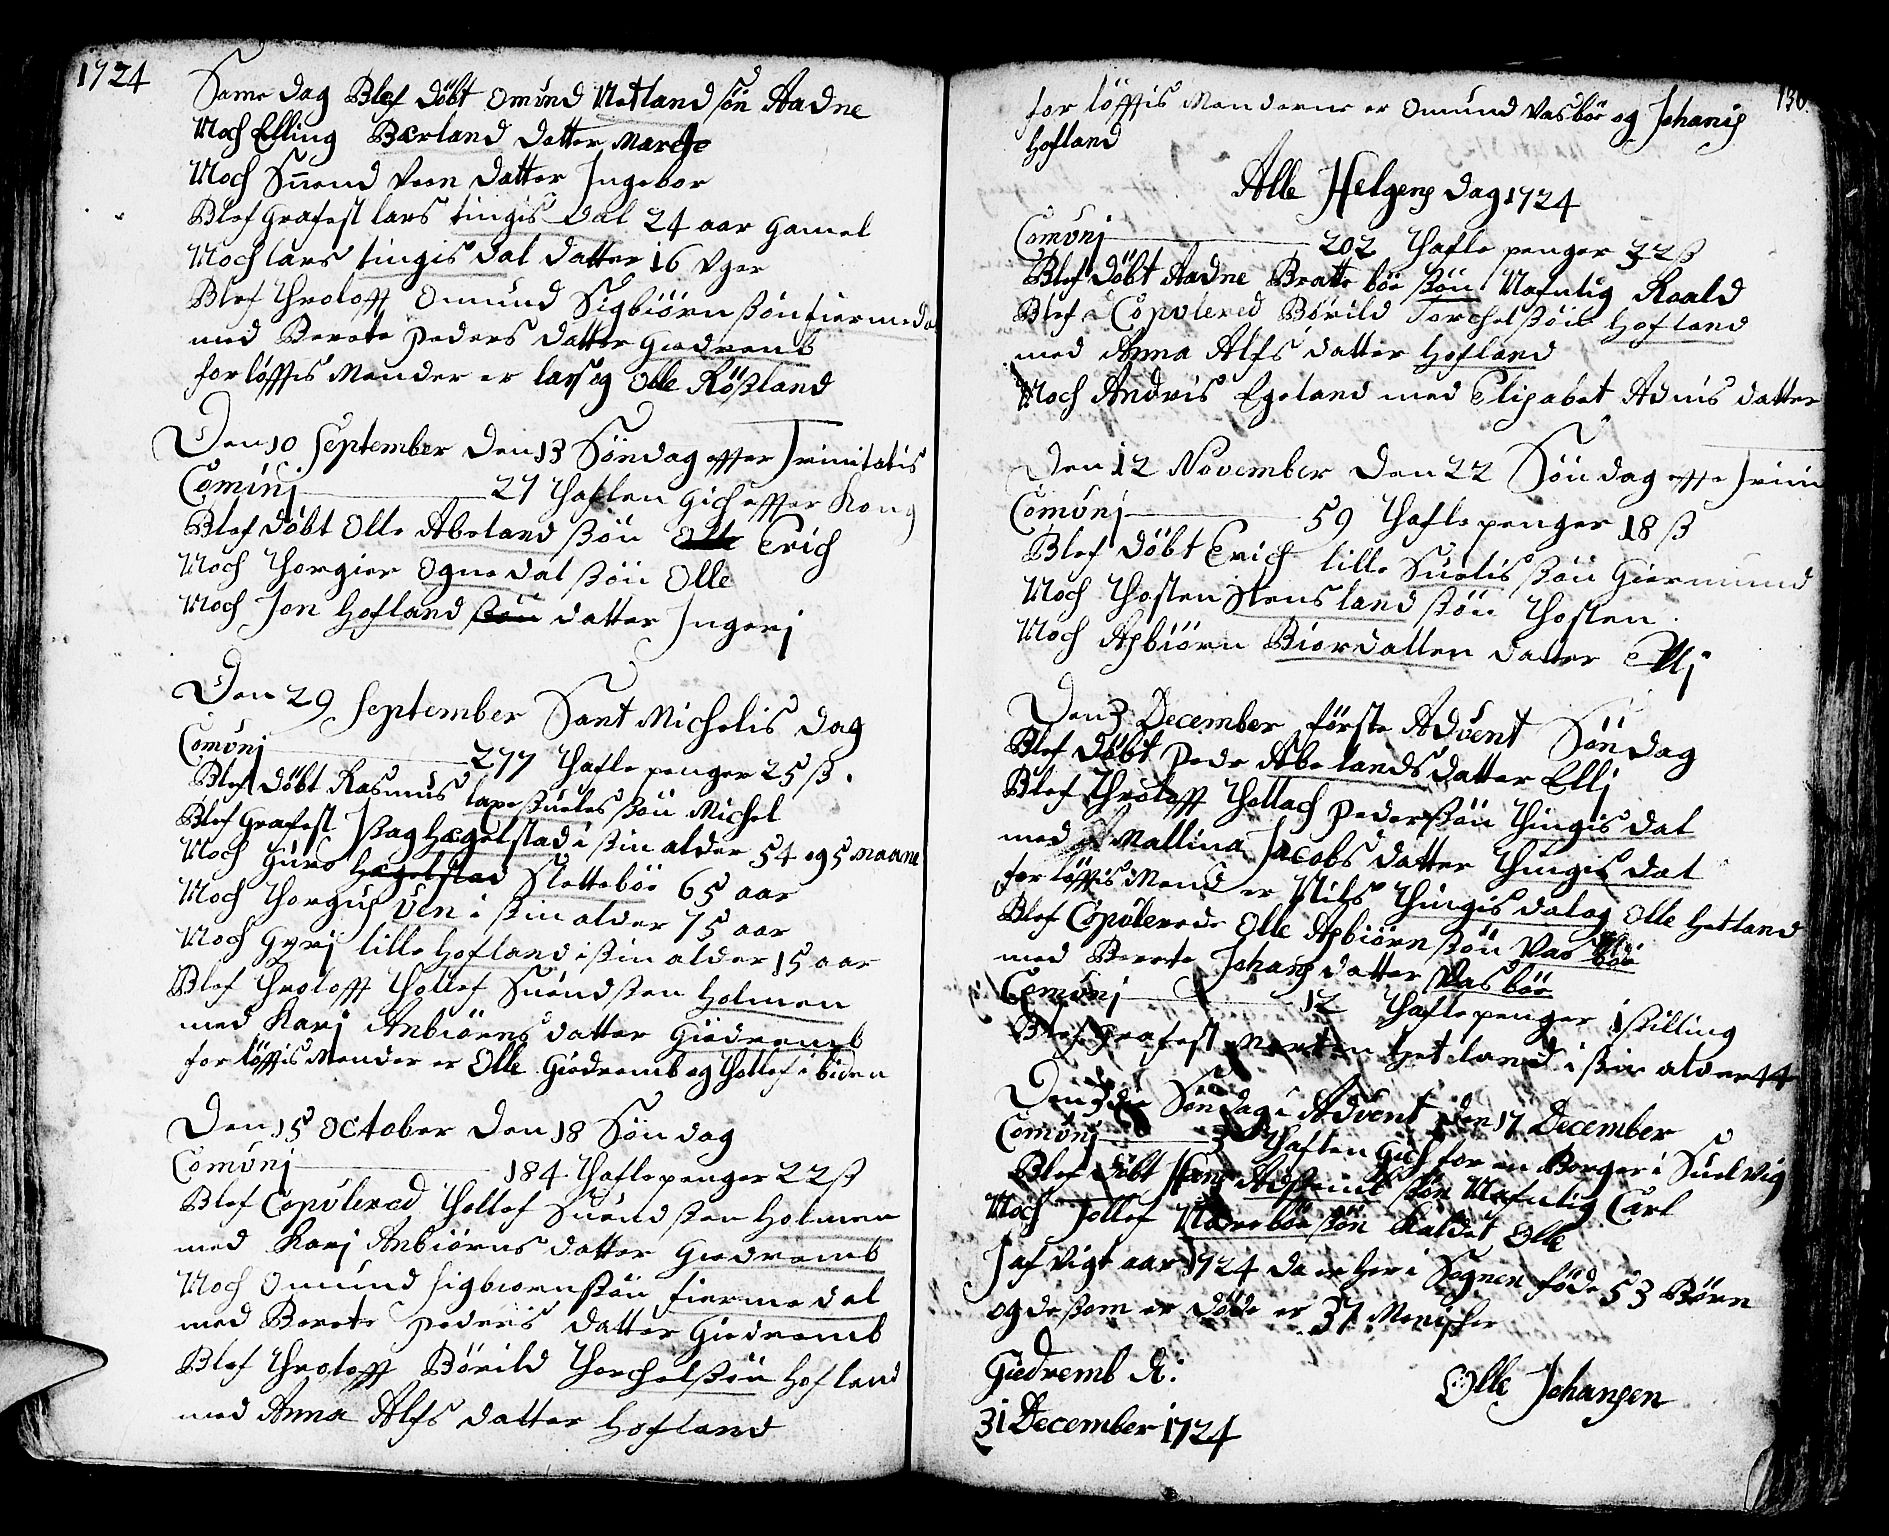 1724
Same dag Blef døbt Omund Netland søn Aadne
Noch Elling Bærland datter Marche
Noch Suend Veen datter Ingebor
Blef Grafest lars tingis dal 24 aar gamel
Noch lars tingis dal datter 16 Vger
Blef throloff Omund Sigbiørn søn fiermeda
med Berete Peders datter Giedremb
forløffis Mender er lars og Olle Røsland
Den 10 September Den 13 Søndag effter Trinitatis
Comūnj 27 thaflen gich effter Kong
Blef døbt Olle Abeland søn Olle Erich
Noch Thorgier Ognedal søn Olle
Noch Jon Hofland søn datter Ingerj
Den 29 September Sant Michelis dag
Comūnj 277 thafle penger 25 ß.
Blef døbt Rasmus laxesueles søn Michel
Blef Grafest Isag Hægelstad i sin alder 54 og 5 maane
Noch Guro Hægelstad Slettebøe 65 aar
Noch Thorgus Ven i sin alder 75 aar
Noch Gyrj lille Hofland i sin alder 15 aar
Blef throloff Thollef Suendsen Holmen
med Karj Anbiørns datter Giedremb
forløffis Mender er Olle Giedremb og thollef ibiden
Den 15 October den 18 Søndag
Comūnj 184 thafle penger 22 ß
Blef Copulered Thollef Suendsen Holmen
med Karj Anbiørns datter Giedremb
Noch Omund Sigbiornsøn fiermedal
med Berete Peders datter Giedremb
Blef throloff Børild Thorchelsøn Hofland
med Anna Alfs datter Hofland
130.
forløffis Menderne er Omund Vasbøe og Johanis
Hofland
Alle Helgens Dag 1724
Comūnj 202 thafle penger 32 ß
Blef døbt Aadne Brattebøe søn Nafnlig Roald
Blef Copulered Børild Torchelsøn Hofland
med Anna Alfs datter Hofland
Noch Andris Egeland med Elisabet Adnis datter
Den 12 November Den 22 Søndag effte Trini
Comūnj 59 thafle penger 18 ß
Blef døbt Erich lille Suelis søn Giermund
Noch Thosten Stensland søn Thosten.
Noch Asbiørn Biordallen datter Ellj
Den 3 December første Advent Søndag
Blef døbt Peder Abelands datter Ellj
Blef throloff Thollach Pedersøn Thingis dal
med Mallina Jacobs datter Thingis dal
forløffis Mend er Nils Thingis dal og Olle Hetland
Blef Copulerede Olle Asbiørn søn Vasbøe
med Berete Johans datter Vasbøe
Comūnj 12 thafle penger 1 skilling
Blef grafest Morten Hetland i sin alder 44
Den 3die Søndag i Advent den 17 December
Comūnj 3 thaflen Gich for en Borger i Suelvig
Blef døbt Hans søn Nafnlig Carl
Noch Tollef søn Kaldet Olle
I afvigt aar 1724 da er her i Sognen føde 53 Børn
og desom er døde er 37 Menisker
Giedremb d:
31 December 1724
Olle Johansen